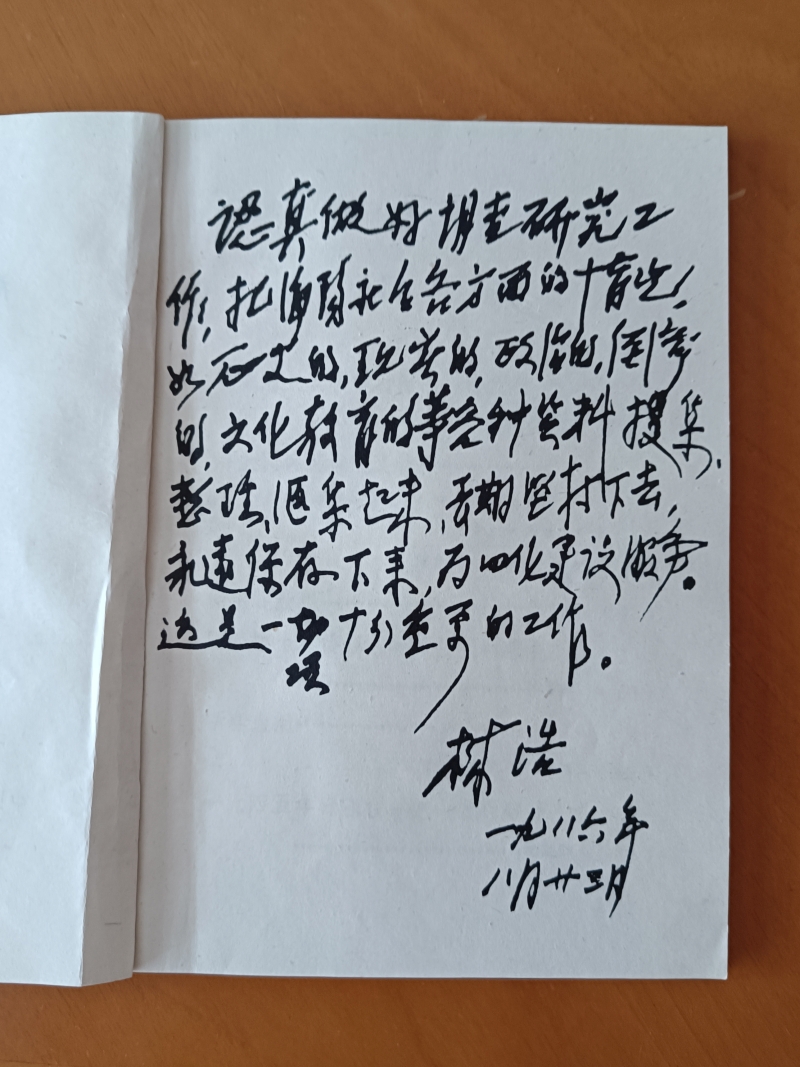 認真做好調查研究工
作，把海南社会各方面的情况，
如历史的，現实的，政治的，经济
的，文化教育的等各种資料搜集，
整理，汇集起来，長期坚持下去，
永遠保存下来，为四化建设服务。
这是一項十分重要的工作。
林浩
一九八六年
八月廿三日